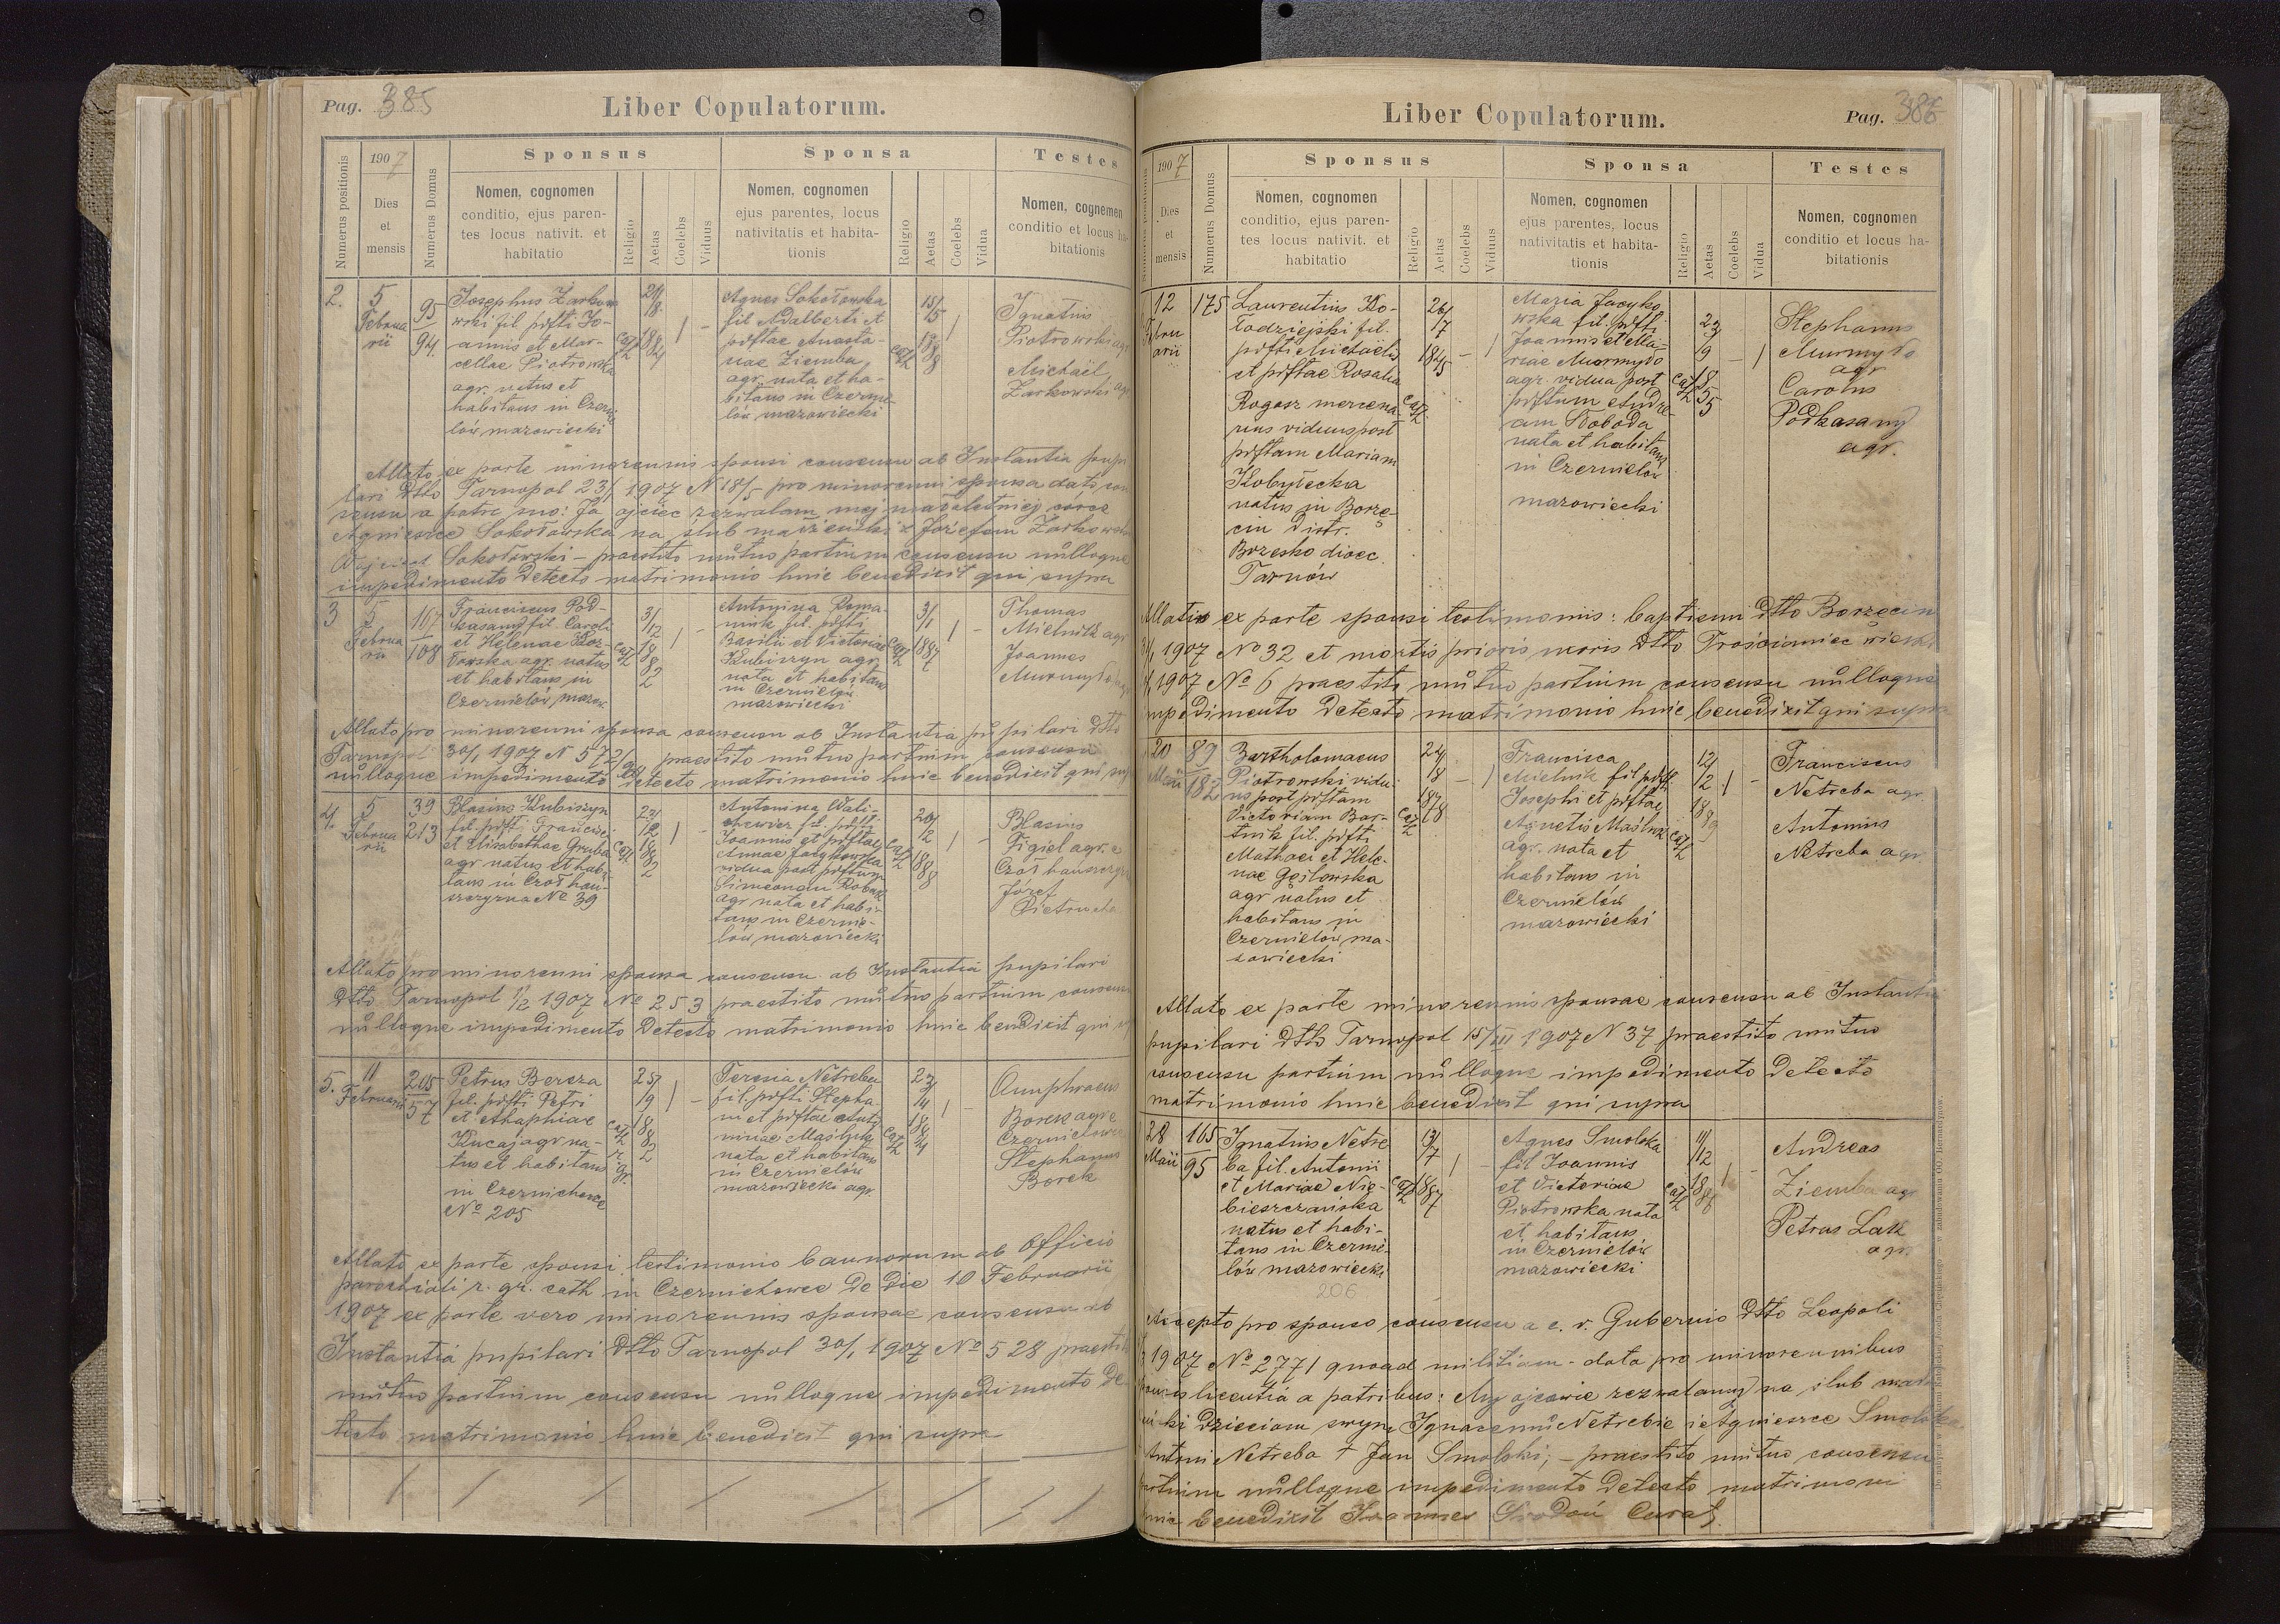 Pag. 385
Liber Copulatorum.
Numerus positionis
1907
Dies
et
mensis
Numerus Domus
Sponsus
Nomen, cognomen
conditio, ejus paren-
tes locus nativit. et
habitatio
Religio
Aetas
Coelebs
Viduus
Sponsa
Nomen, cognomen
ejus parentes, locus
nativitatis et habita-
tionis
Religio
Aetas
Coelebs
Vidua
Testes
Nomen, cognemen
conditio et locus ha-
bitationis
2.
5
Februa
rii
95
94
Josephus Zarkow
wski fil. pdfti Jo-
annis et Mar-
cellae Piotrowska
agr. natus et
habitans in Czernie
lów mazowiecki
cath
24/8
1884
Agnes Sokołowska
fil Adalberti et
pdftae Anasta-
siae Ziemba
agr. nata et ha-
bitans in Czernie
lów mazowiecki
cath
15/5
1889
Ignatius
Piotrowski agr
Michaël
Zarkowski agr
Allato ex parte minorennis sponsi consensu ab Instantia pupi
lari dtto Tarnopol 23/1 1907 N 18/5 pro minorenni sponsa dato con
sensu a patre suo: Ja ojciec zezwalam mej małoletniej córce
Agnieszce Sokołowska na ślub małżeński z Józefem Zarkowski
Wojciech Sokołowski – praestito mutuo partium consensu nulloque
impedimento detecto matrimonio huic benedixit qui supra
3
5
Februa
rii
167
108
Franciscus Pod-
kasany fil. Caroli
et Helenae Koz
łowska agr. natus
et habitans in
Czernielów mazow.
cath
3/12
1882
Antonina Roma-
niuk fil. pdfti
Basilii et Victoriae
Kubiszyn agr.
nata et habitans
in Czernielów
mazowiecki
cath
3/1
1887
Thomas
Mielnik agr
Joannes
Murmydo agr
Allato pro minorenni sponsa consensu ab Instantia pupilari dtto
Tarnopol 30/1 1907 N 572/ praestito mutuo partium consensu
nulloque impedimento detecto matrimonio huic benedixit qui sup
4.
5
Februa
rii
39
213
Blasius Kubiszyn
fil. pdfti Francisci
et Elisabethae Gruba
agr natus et habi
tans in Czołhan-
szczyzna No 39
cath
23/12
1882
Antonina Wali-
chewicz fil. pdfti
Joannis et pdftae
Annae Jacykowska
vidua post pdftum
Simeonem Robak
agr nata et habi-
tans in Czernie-
lów mazowiecki
cath
20/2
1888
Blasius
Figiel agr. e
Czołhanszczyzna
Józef
Pietrucha
Allato pro minorenni sponsa consensu ab Instantia pupilari
dtto Tarnopol 1/2 1907 No 253 praestito mutuo partium consensu
nulloque impedimento detecto matrimonio huic benedixit qui s
5.
11
Februarii
205
57
Petrus Bereza
fil. pdfti Petri
et Ahaphiae
Kucaj agr na-
tus et habitans
in Czernichowce
No 205
cath
r. gr.
25/9
1882
Teresia Netreba
fil. pdfti Stepha
ni et pdftae Anto
ninae Maślyk
nata et habitans
in Czernielów
mazowiecki agr.
cath
23/11
1884
Onuphraeus
Borek agr e
Czernielowie
Stephanus
Borek
Allato ex parte sponsi testimonio bannorum ab Officio
parochiali r. gr. cath in Czernichowce de die 10 Februarii
1907 ex parte vero minorennis sponsae consensu ab
Instantia pupilari dtto Tarnopol 30/1 1907 No 528 praestito
mutuo partium consensu nulloque impedimento de-
tecto matrimonio huic benedixit qui supra
Liber Copulatorum.
Pag. 386
1907
Dies
et
mensis
Numerus Domus
Sponsus
Nomen, cognomen
conditio, ejus paren-
tes locus nativit. et
habitatio
Religio
Aetas
Coelebs
Viduus
Sponsa
Nomen, cognomen
ejus parentes, locus
nativitatis et habita-
tionis
Religio
Aetas
Coelebs
Vidua
Testes
Nomen, cognomen
conditio et locus ha-
bitationis
12
Febru
arii
175
Laurentius Ko-
łodziejski fil.
pdfti Michaëlis
et pdftae Rosalia
Rogosz mercena-
rius viduus post
pdftam Mariam
Kobyłecka
natus in Borzę-
cin distr.
Brzesko dioec
Tarnów
cath
26/7
1845
Maria Jacyko
wska fil. pdfti
Joannis et Ma-
riae Murmydo
agr. vidua post
pdftum Andre
am Słoboda
nata et habitans
in Czernielów
mazowiecki
cath
23/9
1855
Stephanus
Murmydo
agr
Carolus
Podkasany
agr.
Allatis ex parte sponsi testimoniis: baptismi dtto Borzęcin
1907 No 32 et mortis prioris uxoris dtto Trościaniec wielki
1907 No 6 praestito mutuo partium consensu nulloque
impedimento detecto matrimonio huic benedixit qui supra
20
Maii
89
182
Bartholomaeus
Piotrowski vidu-
us post pdftam
Victoriam Bar-
tnik fil. pdfti
Mathaei et Hele-
nae Gęślowska
agr natus et
habitans in
Czernielów ma-
zowiecki
cath
24/8
1878
Francisca
Mielnik fil. pdfti
Josephi et pdftae
Agnetis Maślyk
agr. nata et
habitans in
Czernielów
mazowiecki
cath
12/2
1889
Franciscus
Netreba agr.
Antonius
Netreba agr.
Allato ex parte minorennis sponsae consensu ab Instantia
pupilari dtto Tarnopol 15/III 1907 N 37 praestito mutuo
consensu partium nulloque impedimento detecto
matrimonio huic benedixit qui supra
28
Maii
165
95
Ignatius Netre
ba fil. Antonii
et Mariae Nie-
bieszczańska
natus et habi-
tans in Czernie-
lów mazowiecki
206
cath
13/7
1887
Agnes Smolska
fil Joannis
et Victoriae
Piotrowska nata
et habitans
in Czernielów
mazowiecki
cath
11/12
1886
Andreas
Ziemba agr
Petrus Lak
agr.
Accepto pro sponso consensu a c. r. Gubernio dtto Leopoli
1907 No 2771 quoad militiam - data pro minorennibus
sponsis licentia a patribus: My ojcowie zezwalamy na ślub mał
żeński dzieciom swym Ignacemu Netrebie i Agnieszce Smolska
Antoni Netreba † Jan Smolski; – praestito mutuo consensu
partium nulloque impedimento detecto matrimoni
huic benedixit Joannes Srodoń Curat.